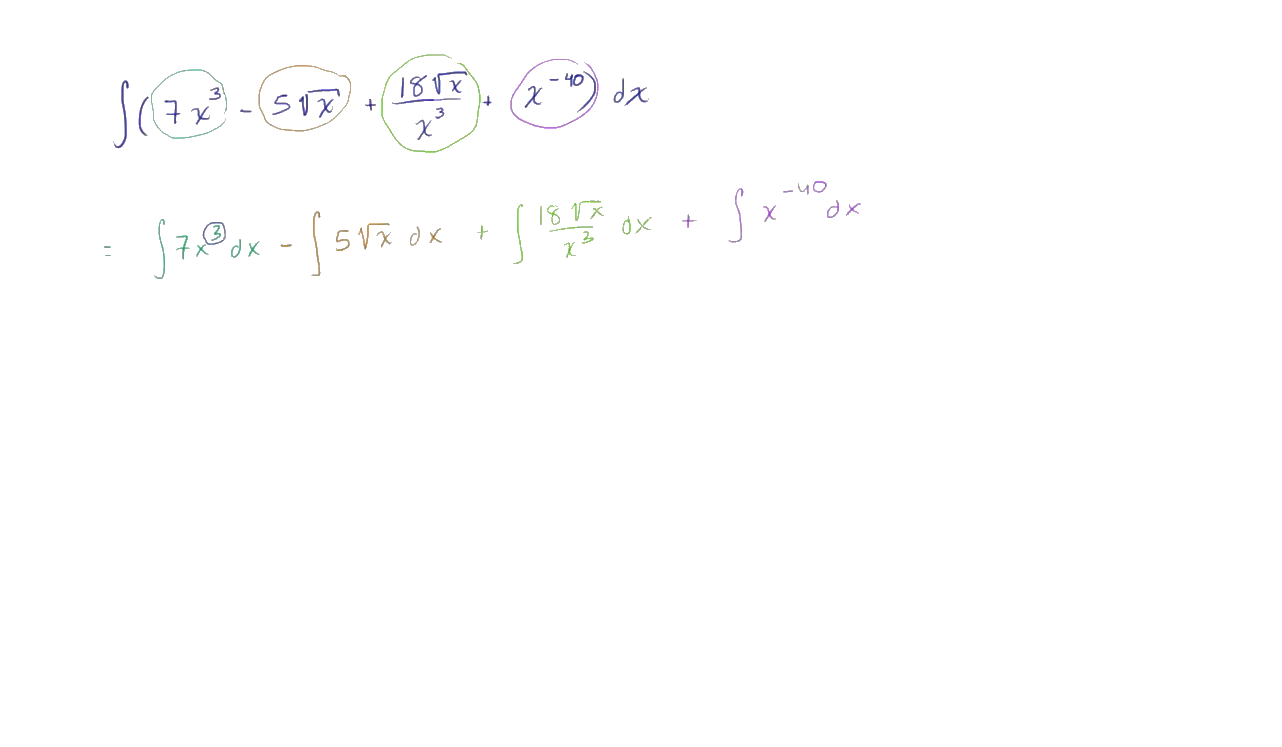 ∫(7x³ - 5√x + 18√x/x³ + x⁻⁴⁰) dx
= ∫7x³dx - ∫5√x dx + ∫18√x/x³ dx + ∫x⁻⁴⁰dx